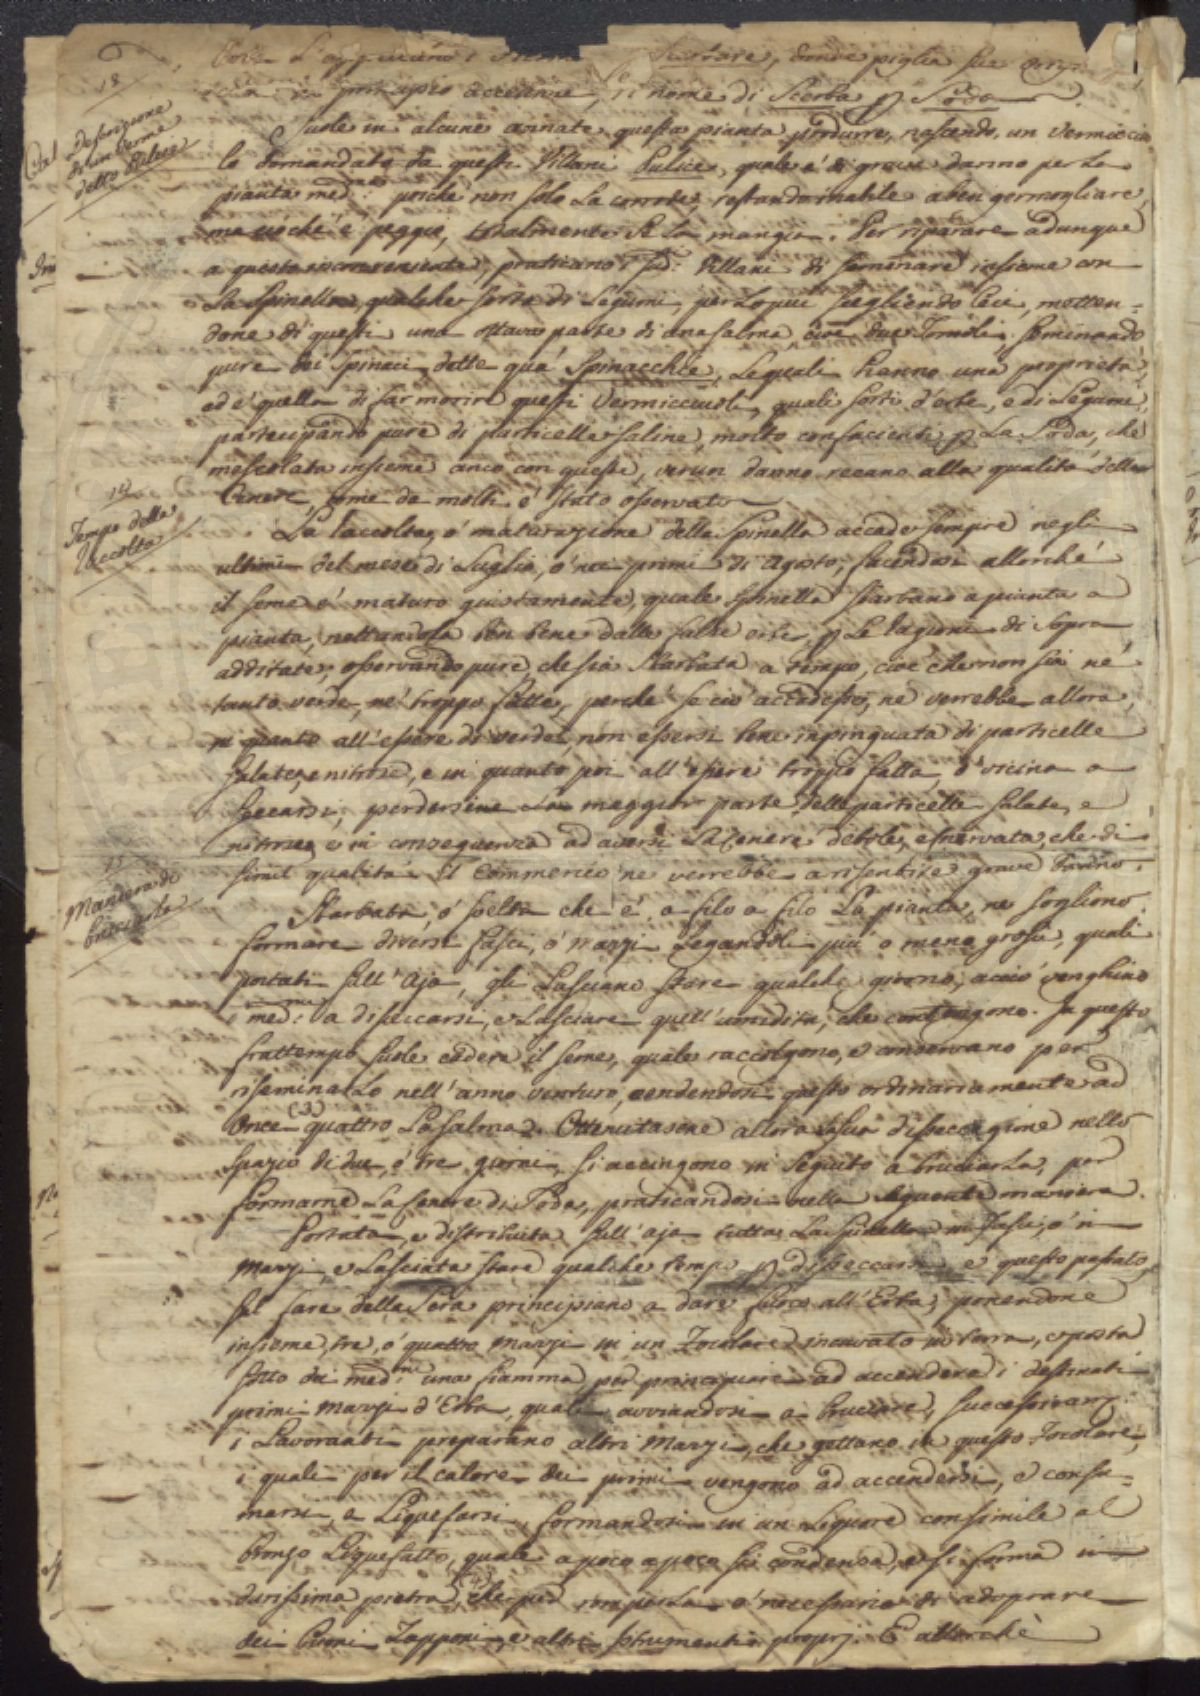 13
Descrizione
di un Verme
detto Pulice
Scarbare, donde piglia sue
principio accidente, il nome di Scerba p Soda
Suole in alcune annate questa pianta produrre, nascendo, un Vermiccio
lo domandato da questi Villani Pulice, quale è di grave danno per la
pianta med.ma poiché non solo la corrode, restando inabile a ben germogliare,
ma ciò ch'è peggio, totalmente se la mangia. Per riparare adunque
a questo inconveniente, praticano i sud.i Villani di seminare insieme con
la Spinella, qualche sorta di Legumi, per lo più scegliendo Ceci, metten=
done di questi una ottava parte di una salma cioè due Tomoli. Seminando
pure dei Spinaci dette quà Spinacchie, le quali hanno una proprietà,
ed è quella di far morire questi Vermicciuoli, quali sorti d'erbe, e di Legumi,
partecipando pure di particelle saline, molto confacienti p La Soda, che
mescolata insieme anco con queste, verun danno recano alla qualità della
Cenere, come da molti è stato osservato
14
Tempo della
Raccolta
La Raccolta, o maturazione della Spinella accade sempre negli
ultimi del mese di Luglio, o nei primi di Agosto, facendosi allorché
il seme è maturo giustamente, quale Spinella sbarbano a pianta a
pianta, nettandola ben bene dalle false erbe, p Le ragioni di sopra
additate, osservando pure, che sia sbarbata a tempo, cioè che non sia né
tanto verde, né troppo fatta, perché se ciò accadesse, ne verrebbe allora,
in quanto all'essere di verde, non essersi bene inpinguata di particelle
salate, e nitrose, e in quanto poi all'essere troppo fatta, o vicina a
seccarsi, perdersene la maggior parte delle particelle salate, e
nitrose, e in conseguenza ad aversi la Cenere debole, e snervata, che di
simil qualità il Commercio ne verrebbe a risentire grave danno.
15
Maniera di
bruciarla
Sbarbata, o scelta che è a filo a filo la pianta, ne sogliono
formare diversi fasci, o mazzi legandoli più o meno grossi, quali
portati sull'Aja, gli lasciano stare qualche giorno, acciò venghino
i med.mi a disseccarsi, e lasciare quell'umidità, che contengono. In questo
frattempo suole cadere il seme, quale raccolgono, e conservano per
riseminarlo nell'anno venturo, vendendosi questo ordinariamente ad
Once (3) quattro la salma. Ottenutasene allora la sua disseccagione nello
spazio di due, o tre giorni, si accingono in seguito a bruciarla, per
formarne la Cenere di Soda, praticandosi nella seguente maniera.
Portata, e distribuita sull'aja tutta la Spinella in fasci, o in
mazzi, e lasciata stare qualche tempo p disseccarsi e questo passato,
sul fare della sera principiano a dare fuoco all'Erba, ponendone
insieme tre, o quattro mazzi in un Focolare incavato in terra, e posta
sotto dei med.mi una fiamma per principiare ad accendere i destinati
primi mazzi d'Erba, quali avviandosi a bruciare, successivam.
i Lavoranti preparano altri mazzi, che gettano in questo Focolare,
i quali per il calore dei primi vengono ad accendersi, e consu=
marsi, e liquefarsi, formandosi in un Liquore consimile al
bronzo liquefatto, quale a poco a poco si condensa, e si forma in
durissima pietra, che per romperla è necessario di adoprare
dei buoni Zapponi, e altri strumenti proprj. E allorché